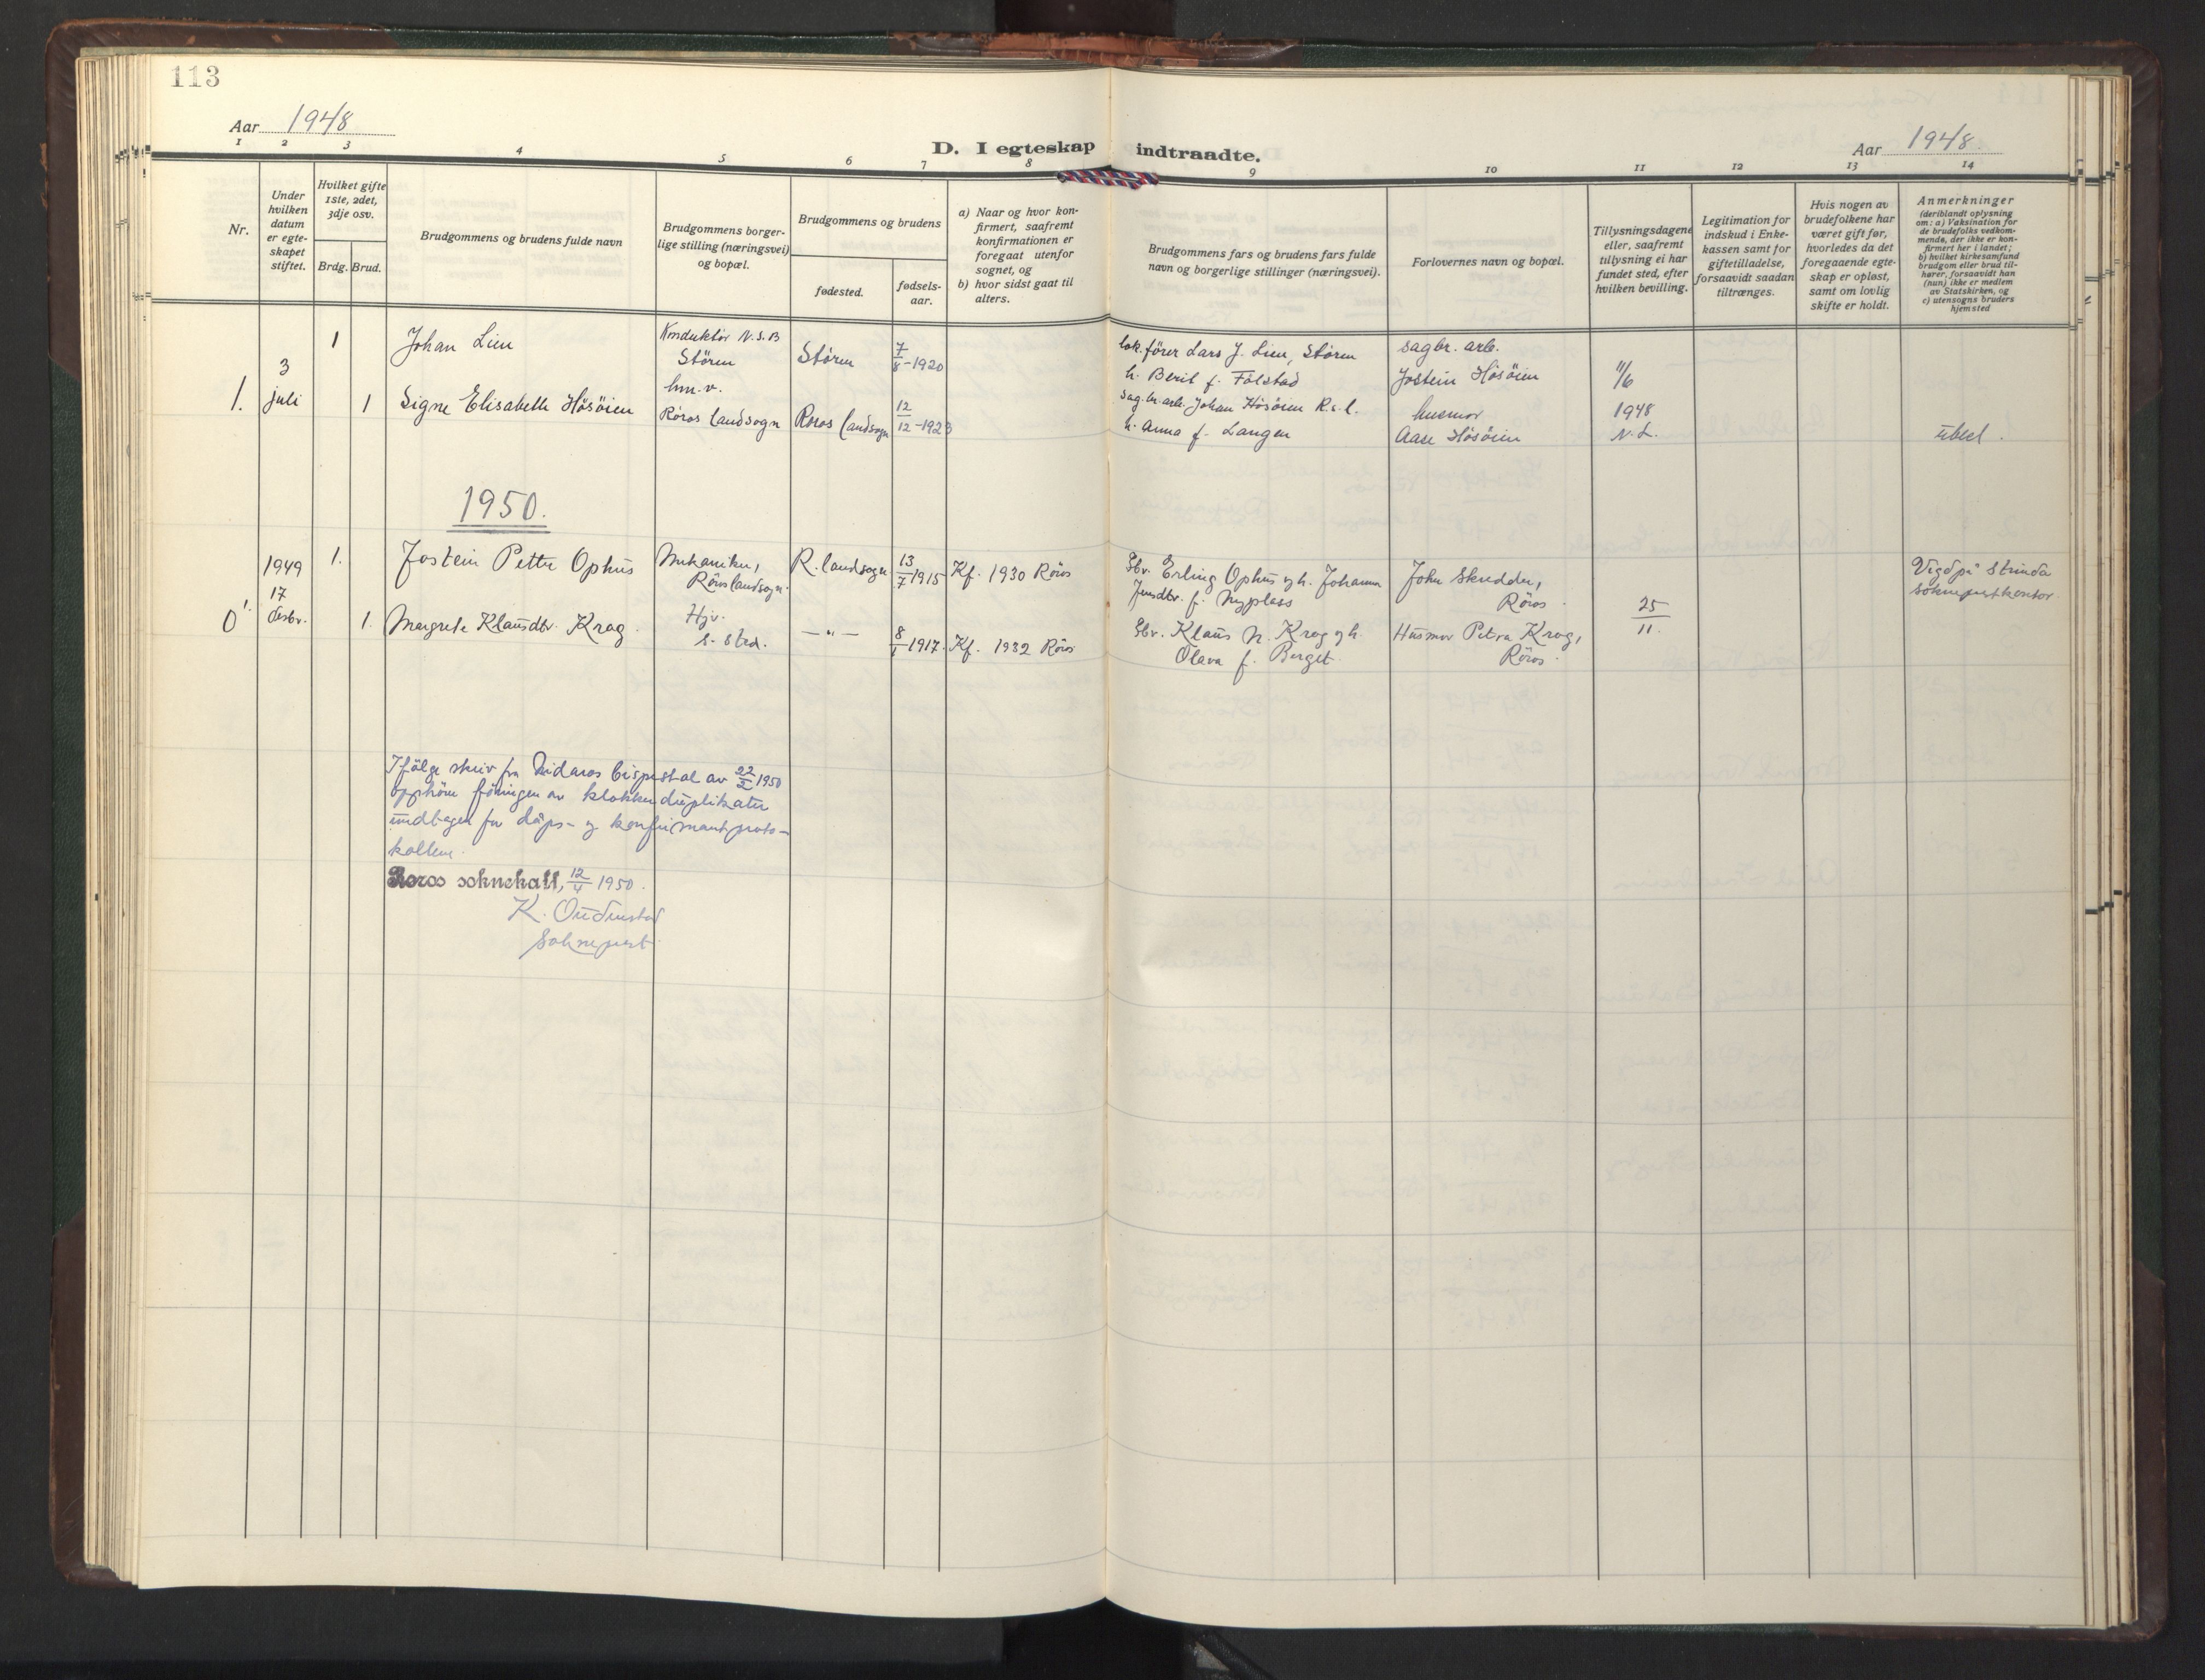 113
Aar 1948
D. I egteskap indtraadte.
Aar 1948.
1 2 3 4 5 6 7 8 9 10 11 12 13 14
Nr.
Under hvilken datum er egte- skapet stiftet.
Hvilket gifte 1ste, 2det, 3dje osv.
Brdg. Brud.
Brudgommens og brudens fulde navn
Brudgommens borger- lige stilling (næringsvei) og bopæl.
Brudgommens og brudens
fødested.
fødsels- aar.
a) Naar og hvor kon- firmert, saafremt konfirmationen er foregaat utenfor sognet, og
b) hvor sidst gaat til alters.
Brudgommens fars og brudens fars fulde navn og borgerlige stillinger (næringsvei).
Forlovernes navn og bopæl.
Tillysningsdagene eller, saafremt tillysning ei har fundet sted, efter hvilken bevilling.
Legitimation for indskud i Enke- kassen samt for giftetilladelse, forsaavidt saadan tiltrænges.
Hvis nogen av brudefolkene har været gift før, hvorledes da det foregaaende egte- skap er opløst, samt om lovlig skifte er holdt.
Anmerkninger
(deriblandt oplysning om: a) Vaksination for de brudefolks vedkom- mende, der ikke er kon- firmert her i landet; b) hvilket kirkesamfund brudgom eller brud til- hører, forsaavidt han (hun) ikke er medlem av Statskirken, og c) utensogns bruders hjemsted
1. 3 juli
1 Johan Lien
Konduktör N.S.B
Stören
Stören
7/8-1920
lok.förer Lars J. Lien, Stören
h. Berit f. Folstad
sagbr. arb.
Jostein Hösöien
11/6
1948
N.L.
1 Signe Elisabeth Hösöien
hm.v.
Röros Landsogn
Röros Landsogn
12/12-1923
sag.br.arb. Johan Hösöien R.s.l.
h. Anna f. Langen
husmor
Aase Hösöien
1950.
0 1949
17
desbr.
1. Jostein Petter Ophus
Mekaniker,
Röros landsogn.
R. landsogn
13/7 1915
Kf. 1930 Röros
Gbr. Erling Ophus og h. Johanna
Jonsdtr. f. Nyplass
John Skredder,
Röros.
25/11.
Vigd på Strinda
sokneprestkontor.
1. Margrete Klausdtr. Krog.
Hjv.
s. sted.
— " —
8/1 1917.
Kf. 1932 Röros
Gbr. Klaus N. Krog og h.
Olava f. Berget.
Husmor Petra Krog,
Röros.
Ifölge skriv fra Nidaros bispestol av 22/2 1950
opphörer föringen av klokkerduplikater
undtagen for dåps- og konfirmantproto-
kollene.
Roros sokneka11, 12/4 1950.
K. Oudenstad
Sokneprest.